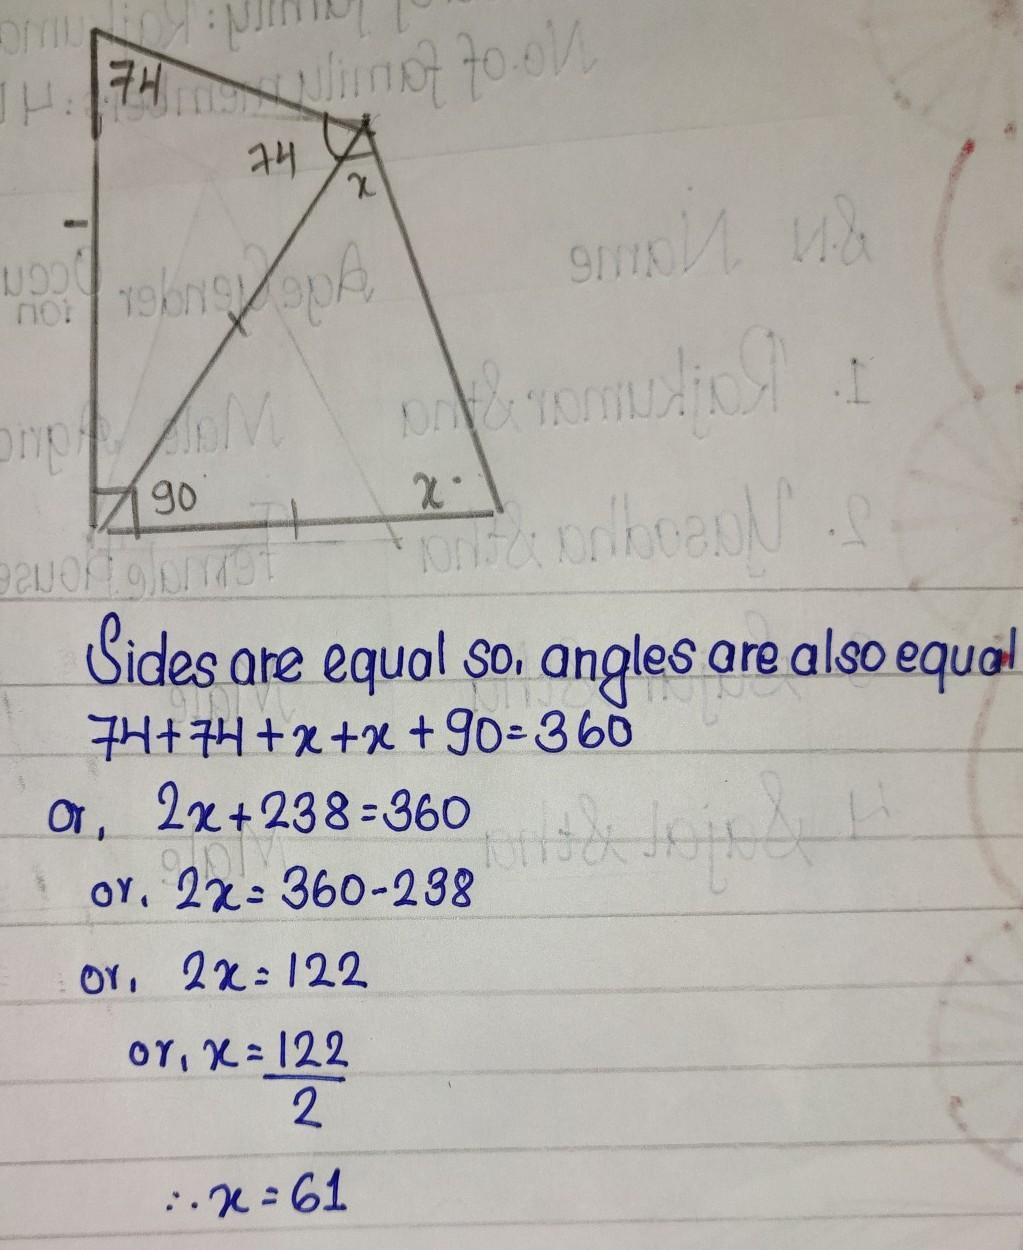 74
74
x
90
x
Sides are equal so, angles are also equal
74+74+x+x+90=360
or, 2x+238=360
or, 2x=360-238
or, 2x=122
or, x=122/2
∴ x=61